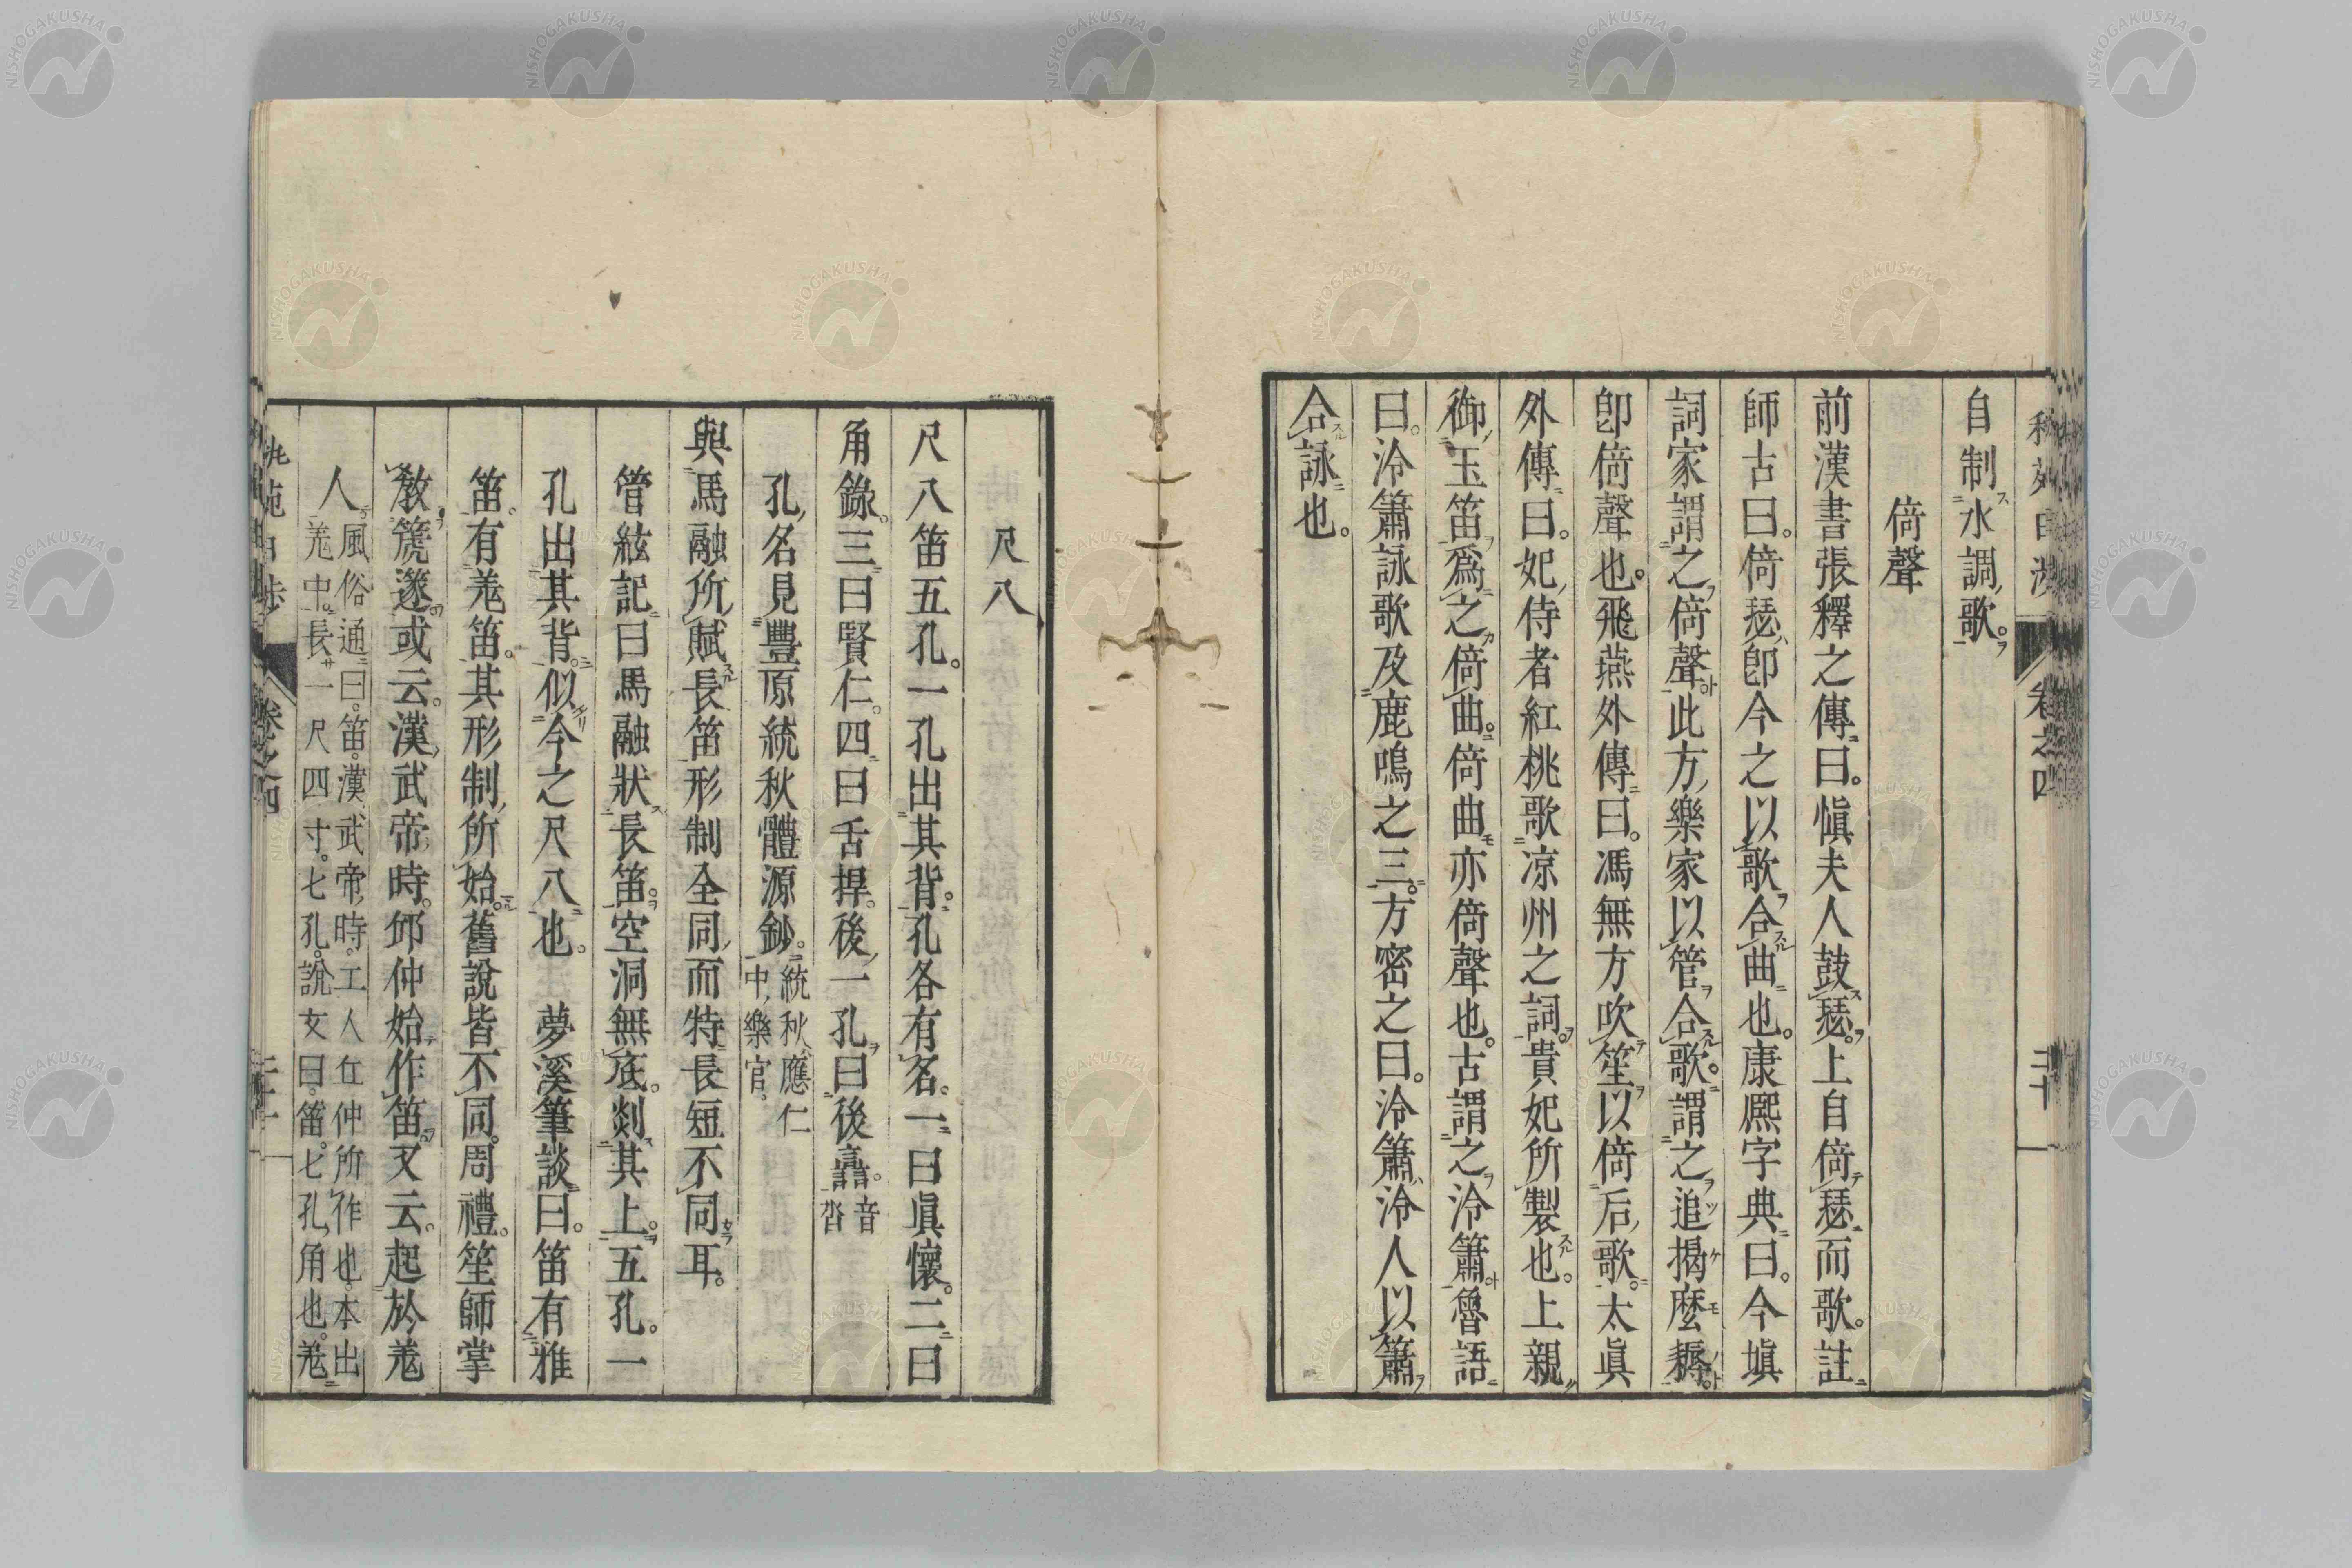 自制水調歌。
倚聲
前漢書張釋之傳曰。愼夫人鼓瑟。上自倚瑟而歌。註
師古曰。倚瑟卽今之以歌合曲也。康熙字典曰。今塡
詞家謂之倚聲此方樂家以管合歌。謂之追揭麼耨。
卽倚聲也。飛燕外傳曰。馮無方吹笙以倚后歌。太眞
外傳曰。妃侍者紅桃歌凉州之詞。貴妃所製也。上親
御玉笛爲之倚曲。倚曲亦倚聲也。古謂之泠簫魯語
曰。泠簫詠歌及鹿鳴之三。方密之曰。泠簫泠人以簫
合詠也。
卷之四
尺八
尺八笛五孔。一孔出其背。孔各有名。一曰眞懷。二曰
角錄。三曰賢仁。四曰舌捍。後一孔曰後譶。音沓
孔名見豐原統秋體源鈔。統秋應仁中樂官。
與馬融所賦長笛形制全同而特長短不同耳。
管絃記曰馬融狀長笛。空洞無底。剡其上。五孔。一
孔出其背。似今之尺八也。 夢溪筆談曰。笛有雅
笛。有羌笛。其形制所始。舊說皆不同。周禮。笙師掌
教篪篴或云。漢武帝時。邱仲始作笛又云。起於羌
人。風俗通曰。笛。漢武帝時。工人丘仲所作也。本出
羌中。長一尺四寸。七孔。說文曰。笛。七孔角也。羌
卷之四